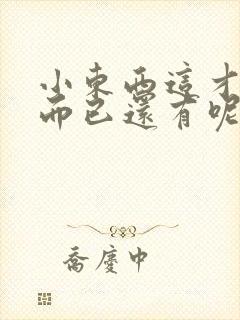 小東西這才
而已還有呢
喬慶中